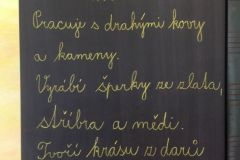 Pracuje s drahými kovy
a kameny.
Vyrábí šperky ze zlata,
stříbra a mědi.
Tvoří krásu z darů